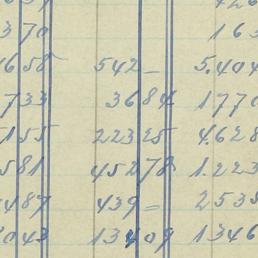 370 163
658 542 – 5.404
733 36 84 1770
155 223 25 4.628
581 452 78 1.223
487 439 – 2538
043 134 09 1346